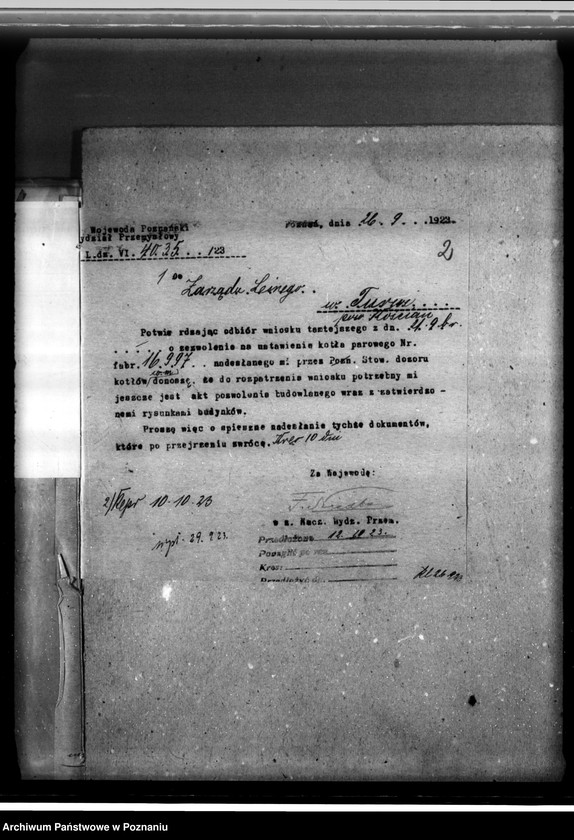 Wojewoda Poznański
ydział Przemysłowy
L.dz. VI. 4035. . . /23
Poznań, dnia 26. 9. . . .1923.
2
1 Do
Zarządu Leśnego. .
w. Turwi. . . .
pow Kościan
Potwierdzając odbiór wniosku tamtejszego z dn. 21.9 br.
. . . . o zezwolenie na ustawienie kotła parowego Nr.
fabr. 16.997. . nadesłanego mi przez Pozn. Stow. dozoru
kotłów donoszę, że do rozpatrzenia wniosku potrzebny mi
jeszcze jest akt pozwolenia budowlanego wraz z zatwierdzo -
nemi rysunkami budynków.
Proszę więc o spieszne nadesłanie tychże dokumentów,
które po przejrzeniu zwrócę. 10 dni
Za Wojewodę:
2) 10-10-23
w z. Nacz. Wydz. Przem.
wysł. 29. 9 23.
Przedłożono 12. 10 23.
Kres:
Archiwum Państwowe w Poznaniu